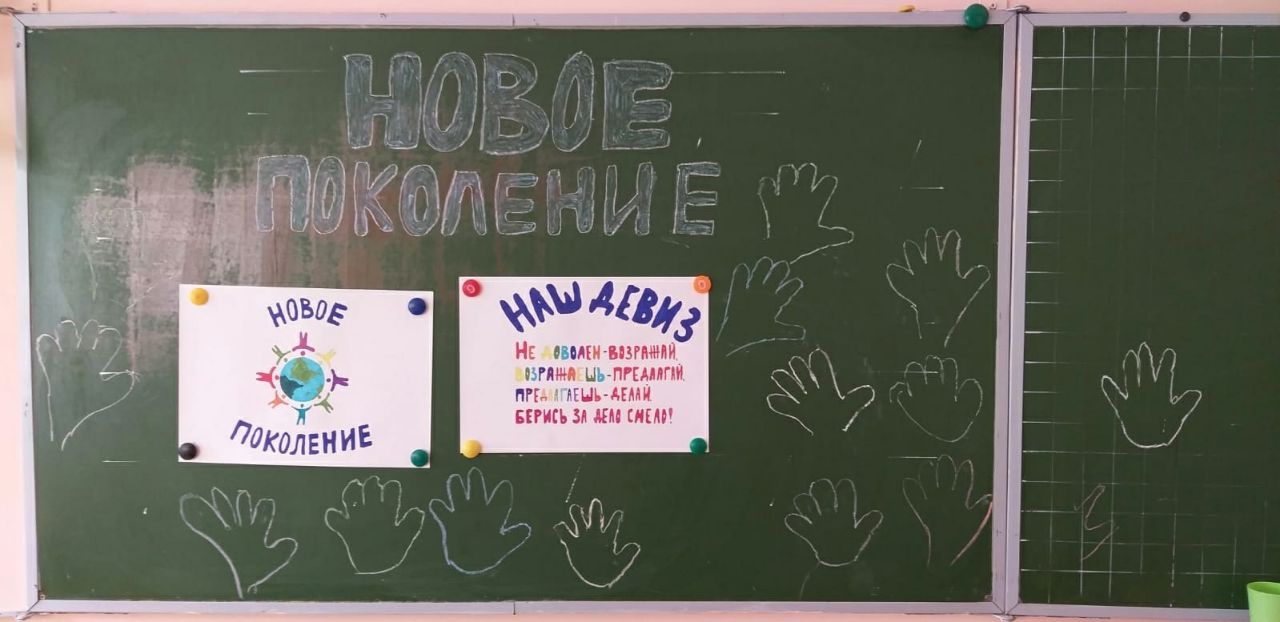 НОВОЕ
ПОКОЛЕНИЕ
НОВОЕ
ПОКОЛЕНИЕ
НАШ ДЕВИЗ
НЕ ДОВОЛЕН-ВОЗРАЖАЙ,
ВОЗРАЖАЕШЬ-ПРЕДЛАГАЙ,
ПРЕДЛАГАЕШЬ-ДЕЛАЙ,
БЕРИСЬ ЗА ДЕЛО СМЕЛО!